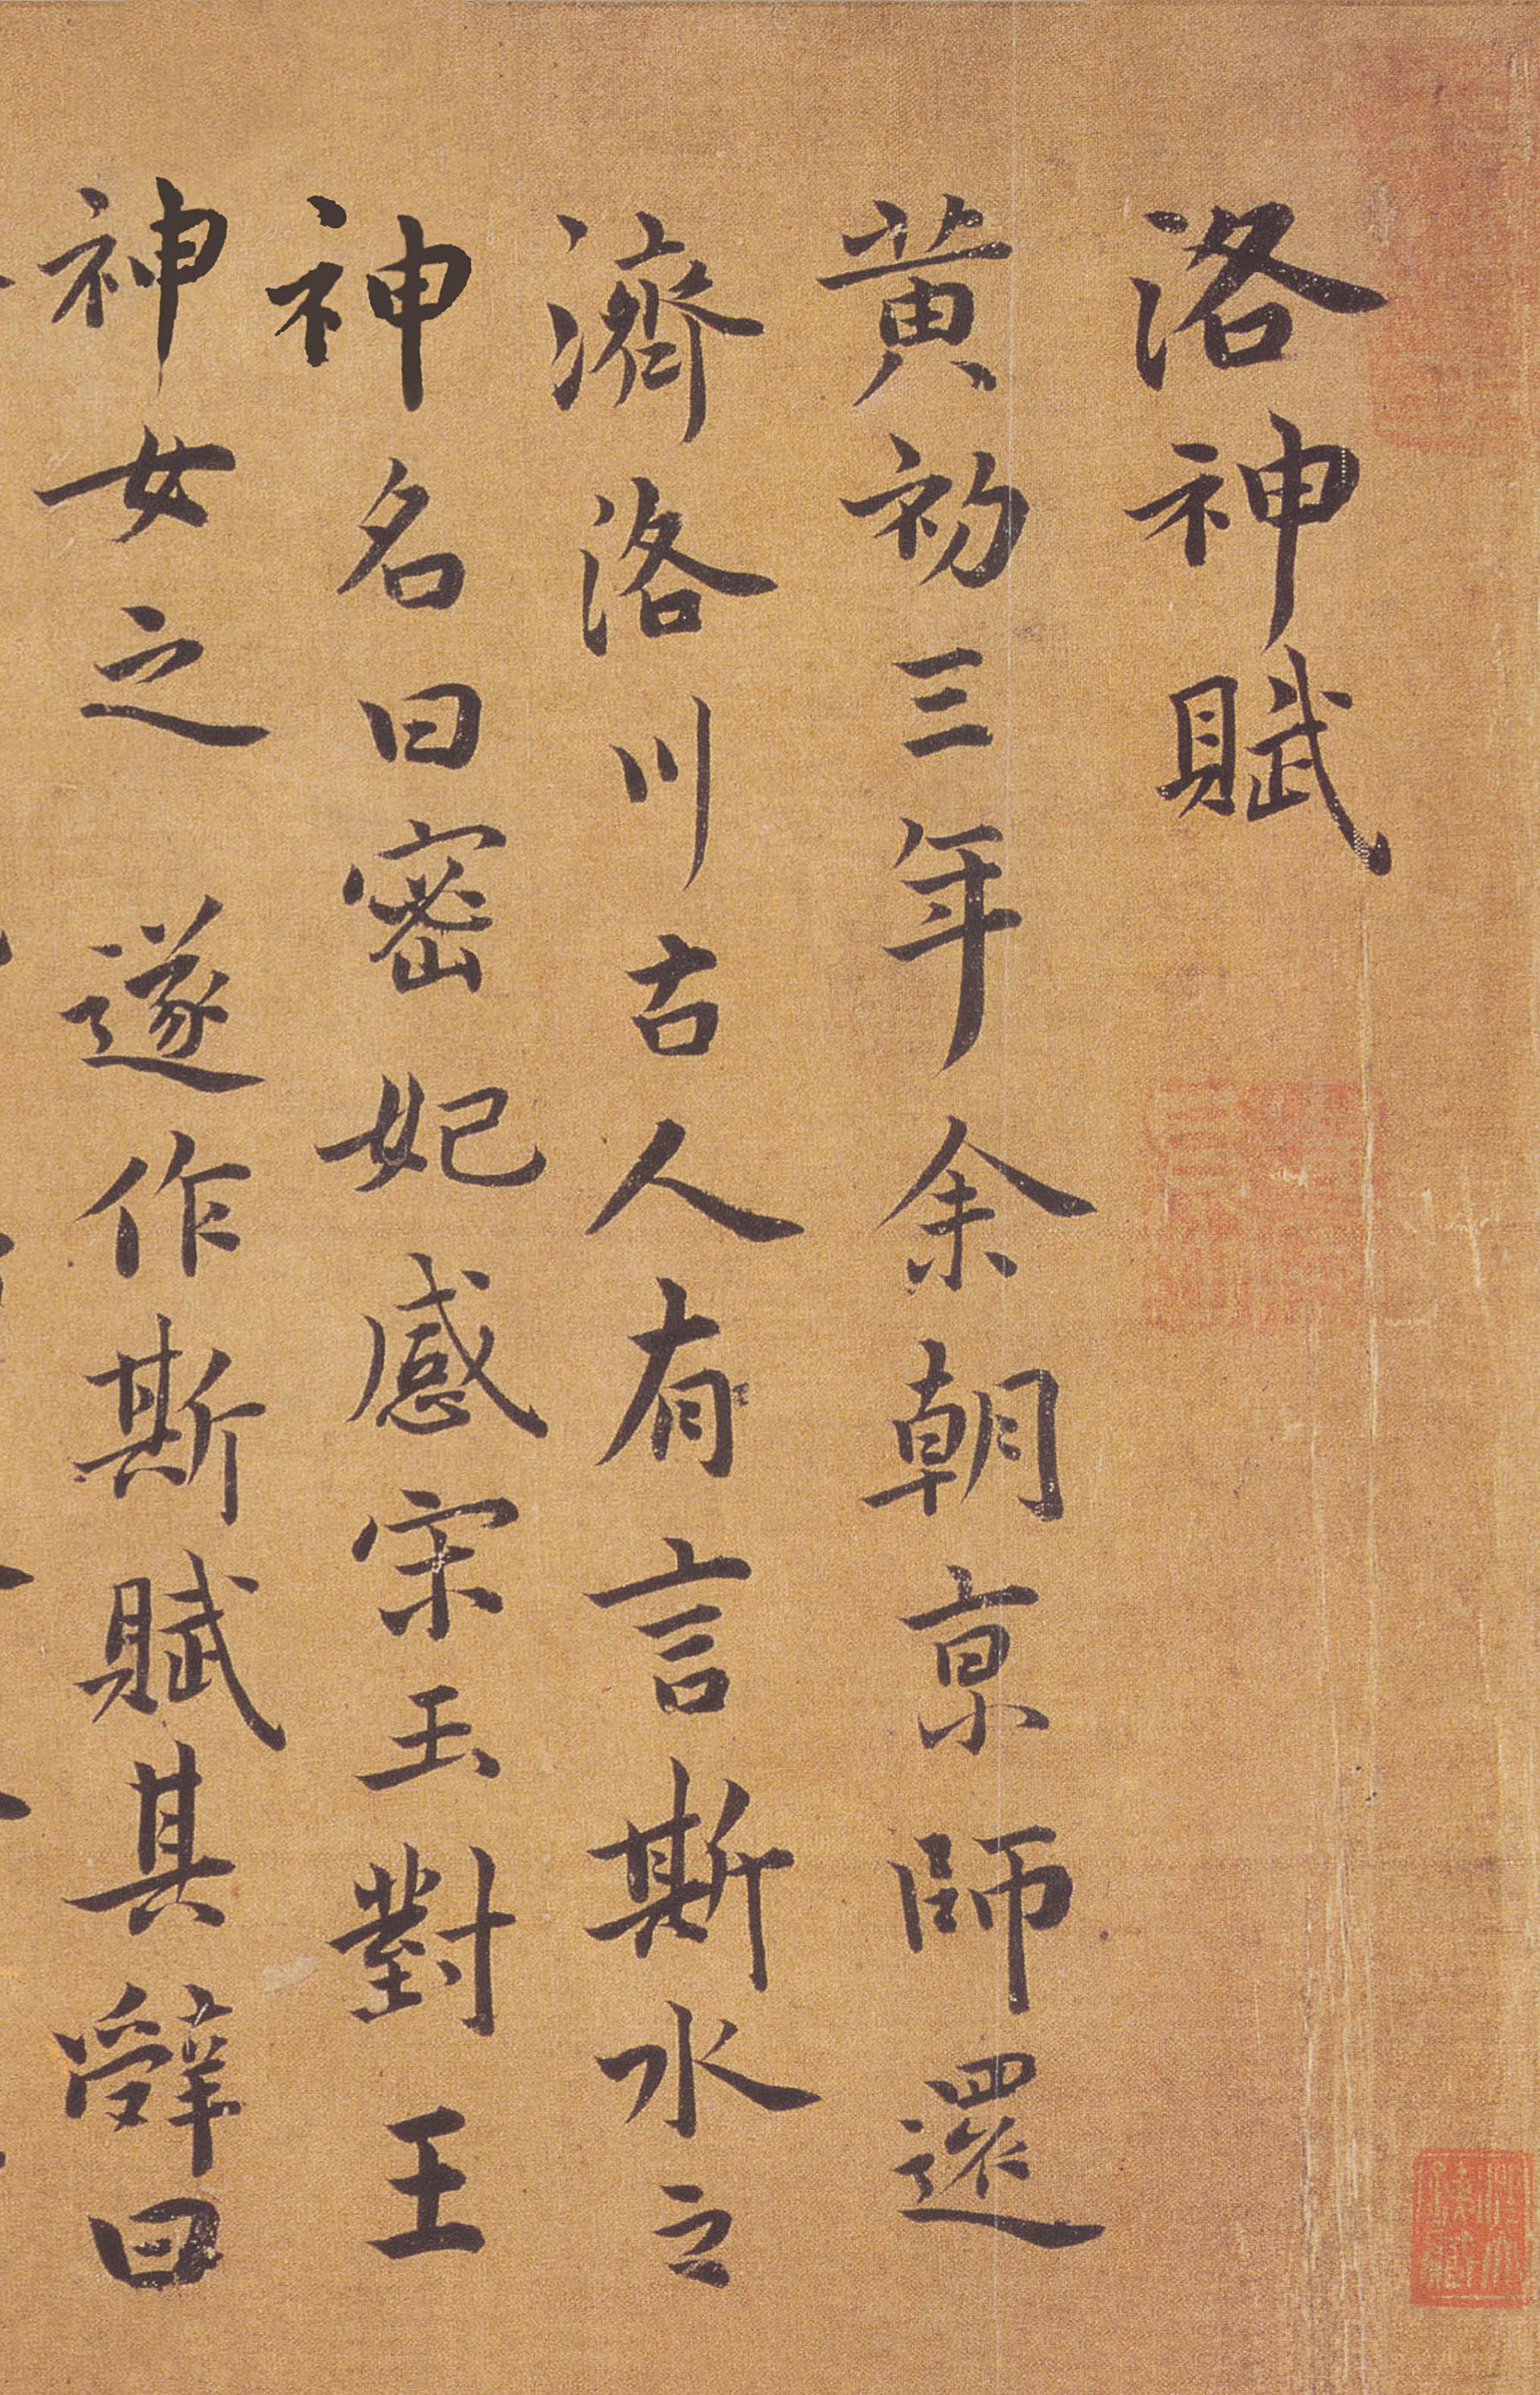 洛神賦
黃初三年余朝京師還
濟洛川古人有言斯水之
神名曰宓妃感宋玉對王
神女之 遂作斯賦其辭曰